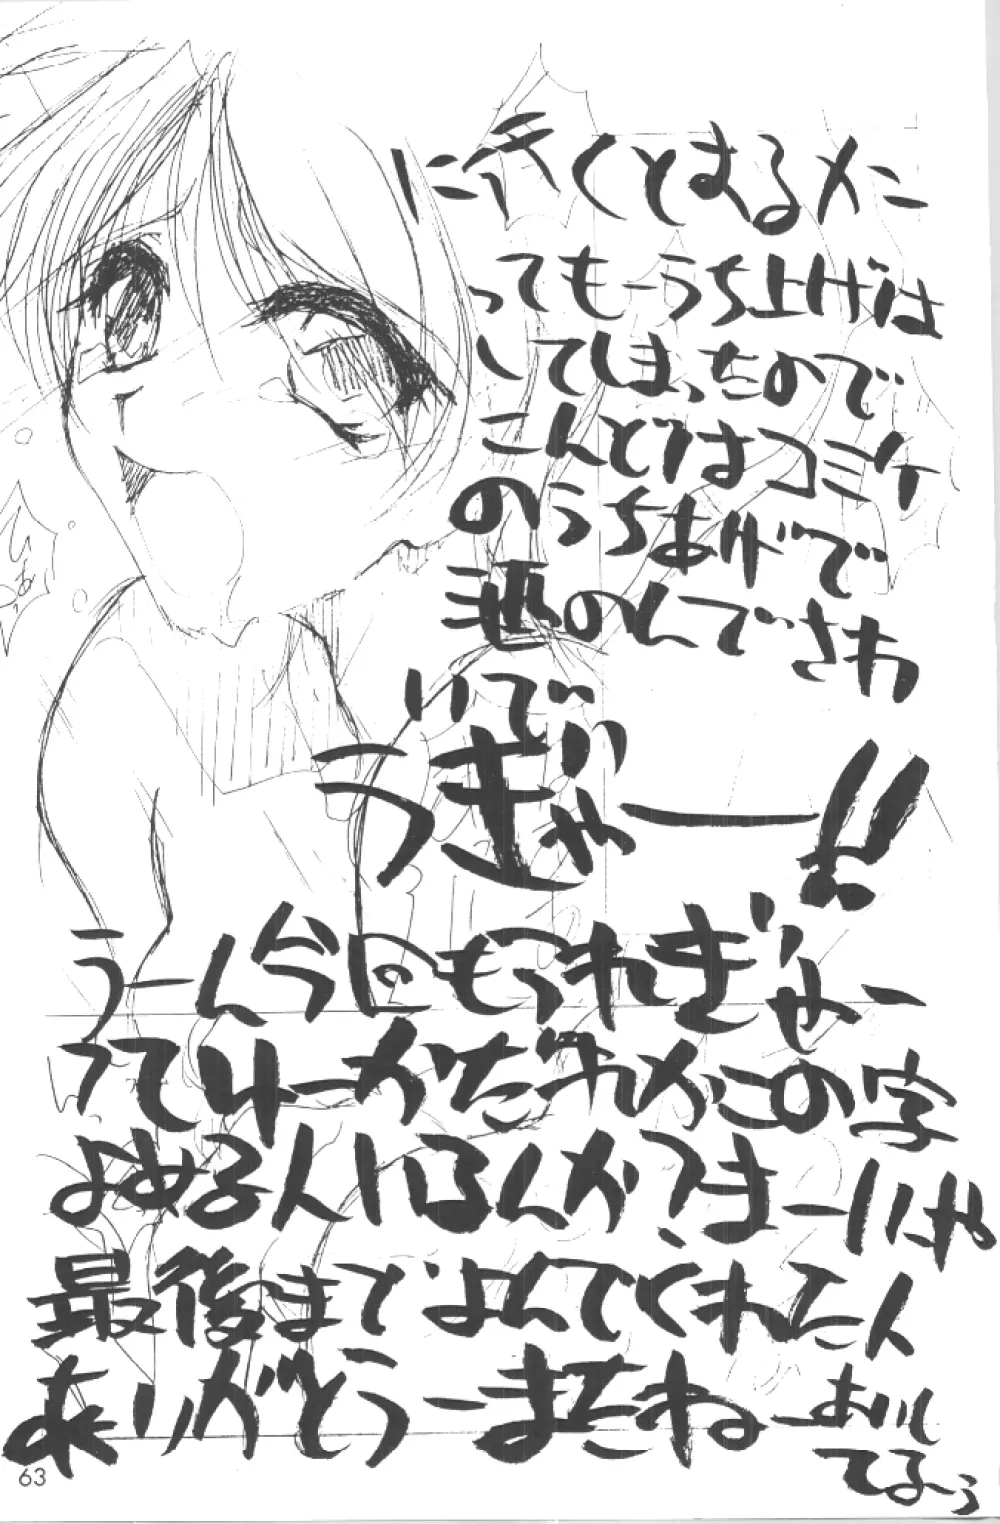 に行くとまるメン
ってもーうち上げは
してしまったので
こんどはコミケ
のうちあげで
酒のんでさわ
いでい
うぎゃー!!
うーん今回もつれぎゃー
ってゆーかだれかこの字
よめる人いるんか?まーいーや
最後までよんでくれた人
ありがとうーまたねーあいし
てるーぅ
ひぁ
63